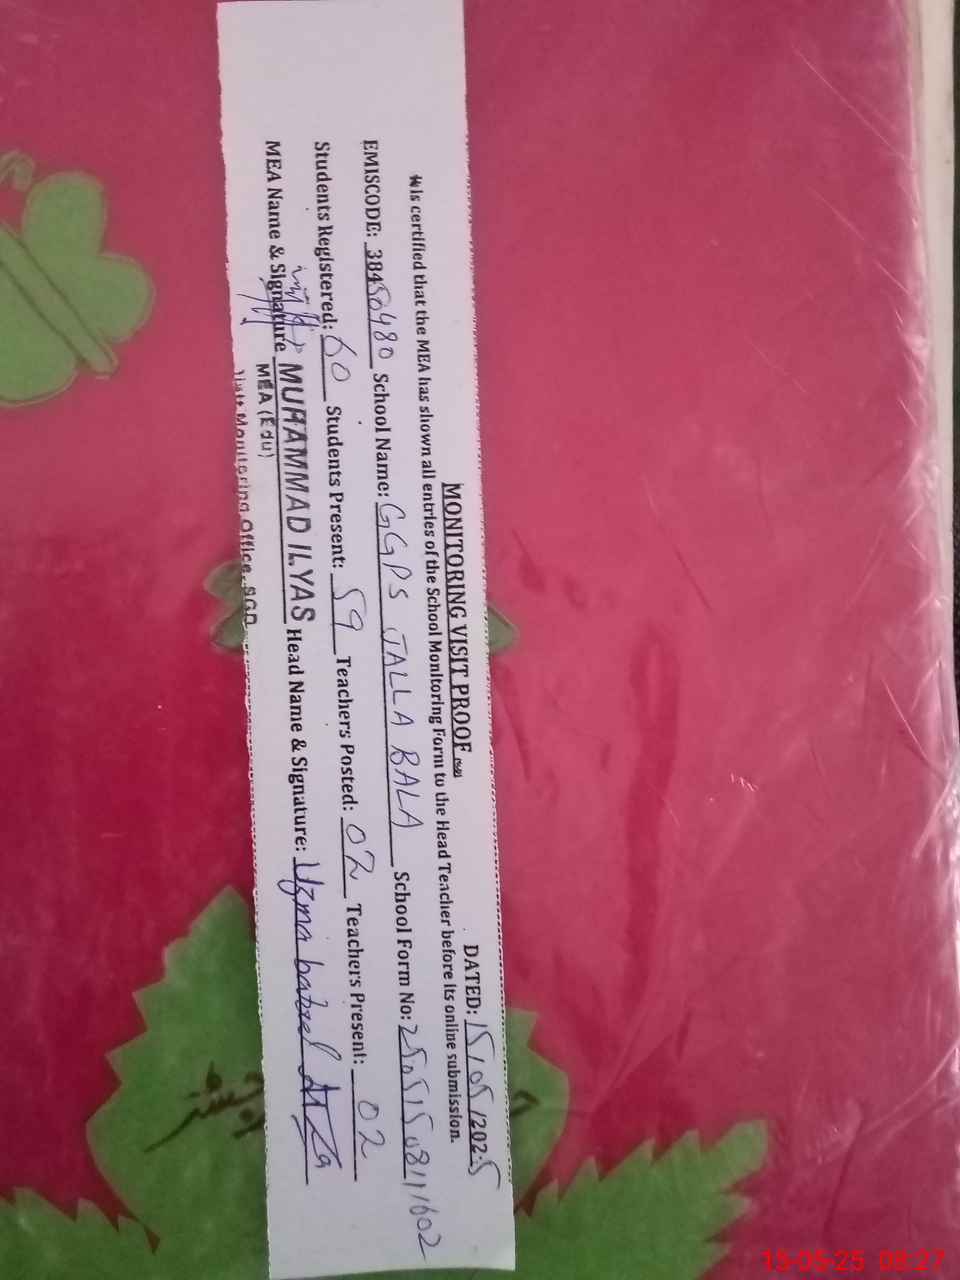 MONITORING VISIT PROOF DATED: 15/05/2025
It is certified that the MEA has shown all entries of the School Monitoring Form to the Head Teacher before its online submission.
EMISCODE: 38450480 School Name: GGPS JALLA BALA School Form No: 2505150811602
Students Registered: 60 Students Present: 59 Teachers Posted: 02 Teachers Present: 02
MEA Name & Signature MUHAMMAD ILYAS Head Name & Signature: Uzma batool
MEA (Edu)
Monitoring Office, SGD
15-05-25 08:27